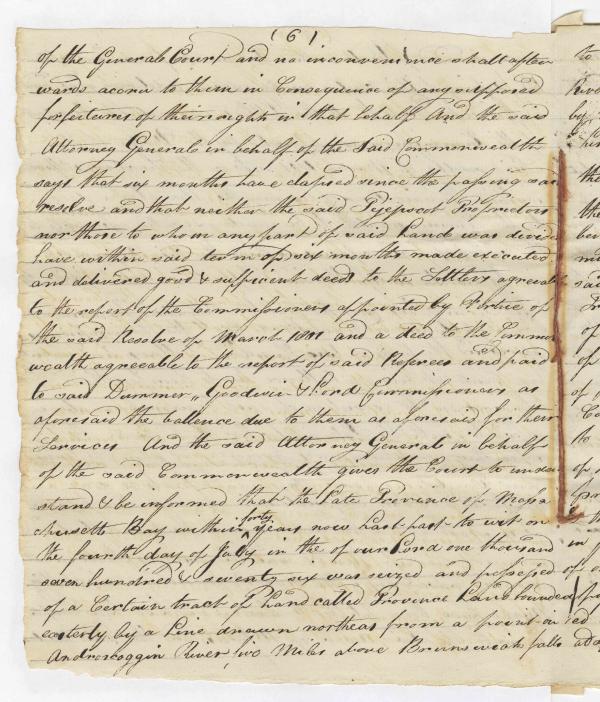 (6)
of the General Court and no inconvenience shall after
wards accru to them in Consequence of any supposed
forfeitures of their right in that behalf And the said
Attorney General in behalf of the Said Commonwealth
says that six months have elapsed since the passing said
resolve and that neither the said Pejepscot Proprietors
nor those to whom any part of said Lands was divided
have within said term of six months made executed
and delivered good & sufficient deeds to the Settlers agreeable
to the report of the Commissioners appointed by Vertue of
the said Resolve of March 1811 and a deed to the Common
wealth agreeable to the report of said Referees and paid
to said Dummer, Goodwin & Lord Commissioners as
aforesaid the ballence due to them as aforesaid for their
Services And the said Attorney General in behalf
of the said Commonwealth gives the Court to under
stand & be informed that the Late Province of Massa
chusetts Bay within forty years now last past to wit on
the fourth day of July in the of our Lord one thousand
seven hundred & seventy six was seized and possessed
of a Certain tract of Land called Province Land bounded
easterly by a Line drawn northeas from a point on
Androscoggin River two Miles above Brunswick falls